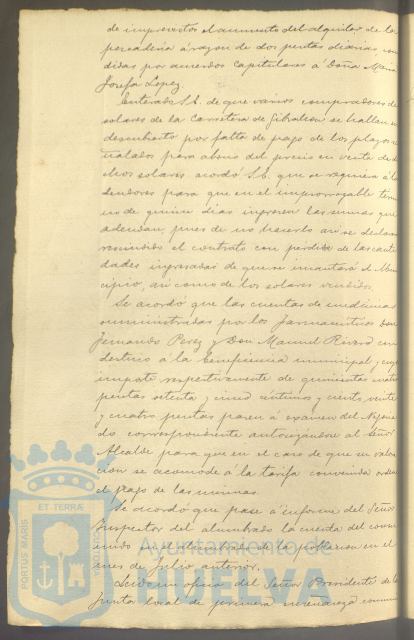 de imprevistos el aumento del alquiler de la
pescaderia á razon de dos pesetas diarias con
didas por acuerdos Capitulares á Doña Maria
Josefa Lopez
Enterado S.E. de que varios compradores de
solares de la Carretera de Gibraleon se hallen en
descubierto por falta de pago de los plazos se
ñalados para abono del precio en venta de d
chos solares acordó S.E. que se requiera á lo
deudores para que en el improrrogable térm
no de quince dias ingresen las sumas que
adeudan, pues de no hacerlo asi se declara
rescindido el contrato con perdida de las canti
dades ingresadas de que se incautará el Mu
cipio, asi como de los solares vendidos.
Se acordó que las cuentas de medicinas
suministradas por los farmaceuticos Don
Fernando Perez y Don Manuel Rivero con
destino á la Beneficencia municipal, cuyo
importe respectivamente de quinientas cuatro
pesetas setenta y cinco centimos y ciento veinte
y cuatro pesetas pasen á examen del Negocia
do correspondiente autorizandose al Señor
Alcalde para que en el caso de que su valora
cion se acomode á la tarifa convenida ordene
el pago de las mismas.
Se acordó que pase á informe del Señor
Inspector del alumbrado la cuenta del consu
mido en el alumbrado de la poblacion en el
mes de Julio anterior.
Leido un oficio del Señor Presidente de la
Junta local de primera enseñanza comuni
PORTUS MARIS ET TERRÆ CUSTODIA
Ayuntamiento de
HUELVA